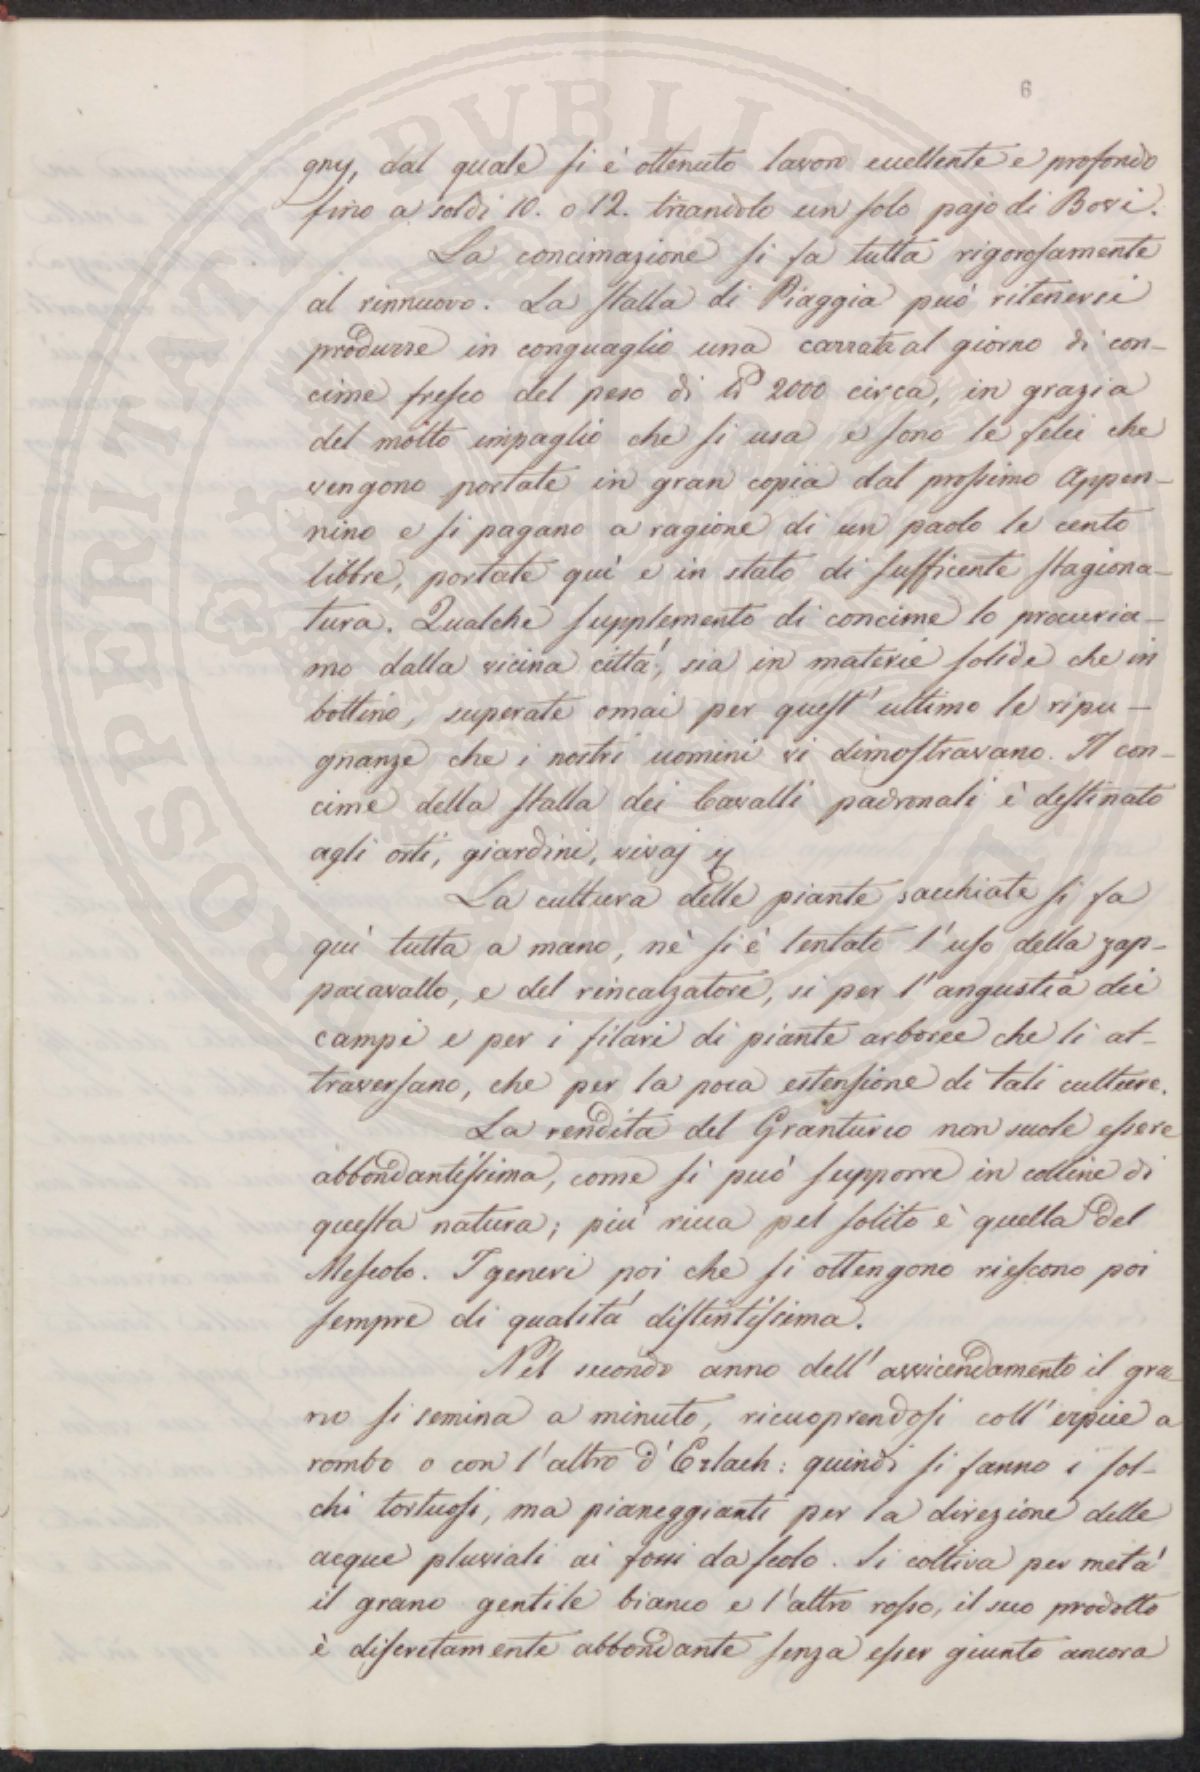 6
gny, dal quale si è ottenuto lavoro eccellente e profondo
fino a soldi 10. o 12. tirandolo un solo pajo di Bovi.
La concimazione si fa tutta rigorosamente
al rinnuovo. La stalla di Piaggia può ritenersi
produrre in conguaglio una carrata al giorno di con-
cime fresco del peso di lb 2000 circa, in grazia
del molto impaglio che si usa e sono le felci che
vengono portate in gran copia dal prossimo Appen-
nino e si pagano a ragione di un paolo le cento
libbre, portate quì e in stato di sufficente stagiona-
tura. Qualche supplemento di concime lo procuria-
mo dalla vicina città, sia in materie solide che in
bottino, superate omai per quest'ultimo le ripu-
gnanze che i nostri uomini vi dimostravano. Il con-
cime della stalla dei Cavalli padronali è destinato
agli orti, giardini, vivaj
La cultura delle piante sacchiate si fa
quì tutta a mano, nè si è tentato l'uso della zap-
pacavallo, e del rincalzatore, si per l'angustia dei
campi e per i filari di piante arboree che li at-
traversano, che per la poca estensione di tali culture.
La rendita del Granturco non suole essere
abbondantissima, come si può supporre in colline di
questa natura; più ricca pel solito è quella del
Mescolo. I generi poi che si ottengono riescono poi
sempre di qualità distintissima.
Nel secondo anno dell'avvicendamento il gra-
no si semina a minuto, ricuoprendosi coll'erpice a
rombo o con l'altro d'Erlach: quindi si fanno i sol-
chi tortuosi, ma pianeggianti per la direzione delle
acque pluviali ai fossi da scolo. Si coltiva per metà
il grano gentile bianco e l'altro rosso, il suo prodotto
è discretamente abbondante senza esser giunto ancora
PROSPERITATI PUBLICAE